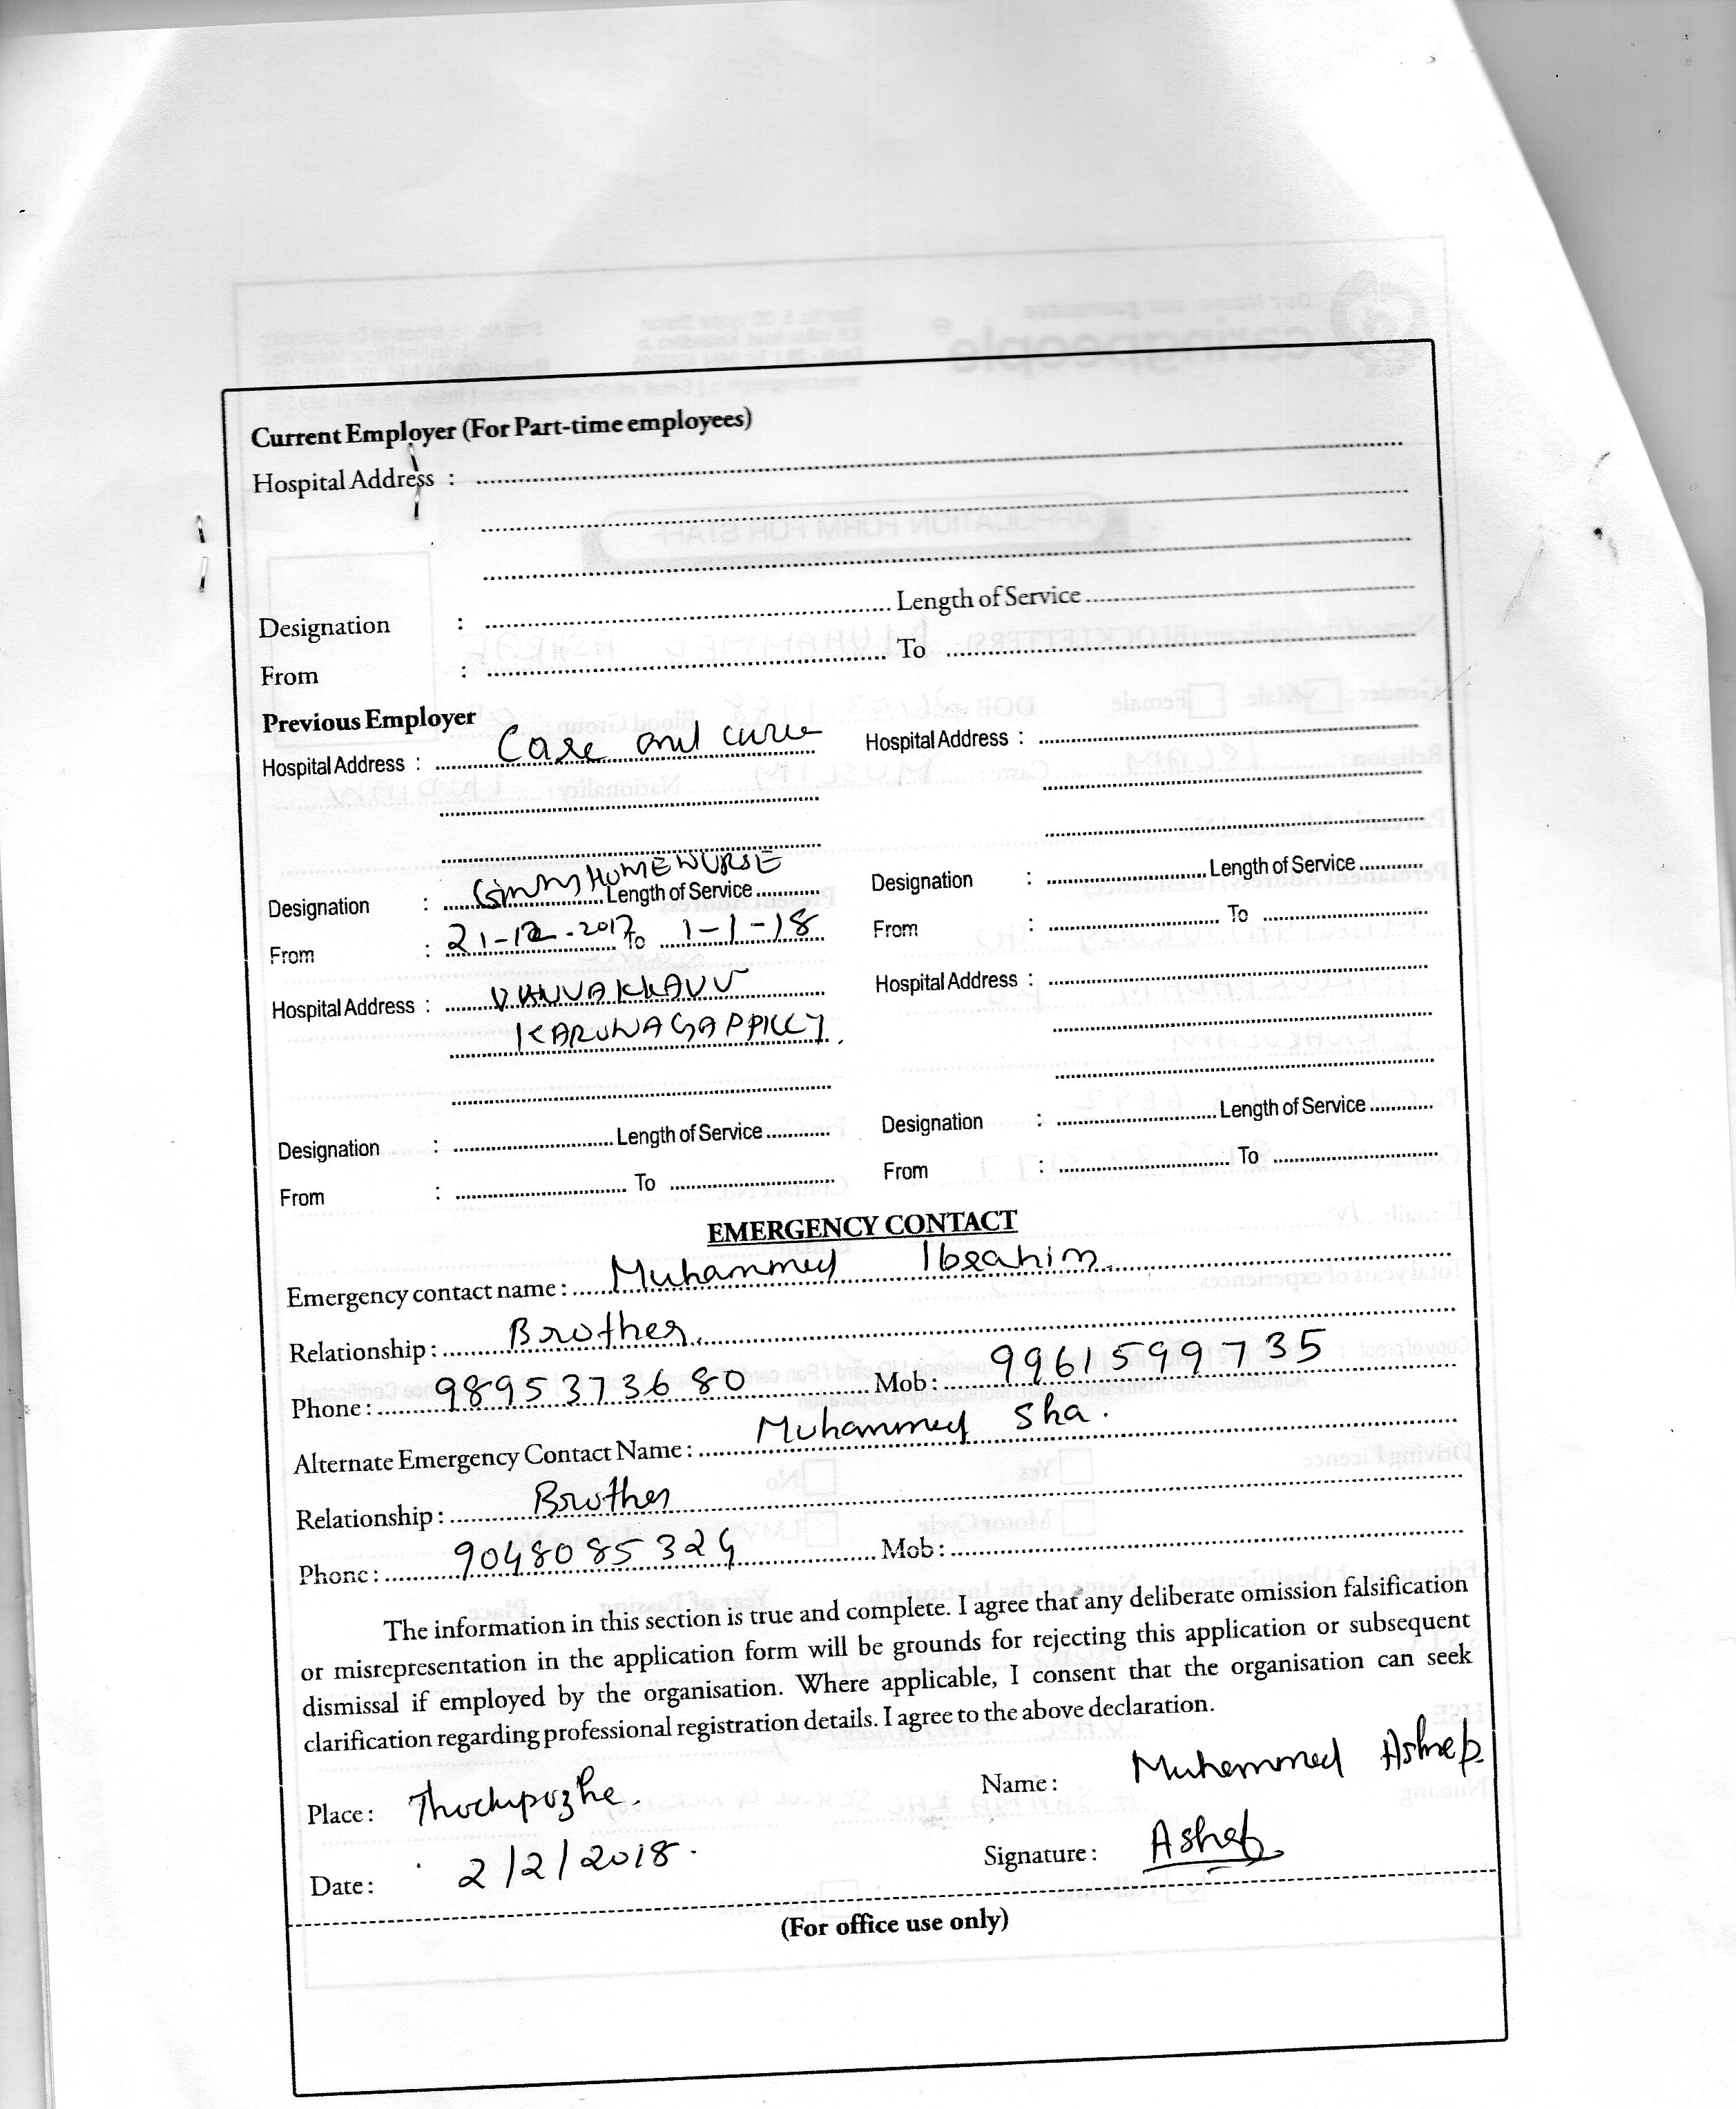 Current Employer (For Part-time employees)
Hospital Address :
Designation : Length of Service
From : To
Previous Employer
Hospital Address : Care and cure Hospital Address :
Designation : HOME NURSE Length of Service Designation : Length of Service
From : 21-12-2017 To 1-1-18 From : To
Hospital Address : Hospital Address :
KARUNAGAPPILLY.
Designation : Length of Service Designation : Length of Service
From : To From : To
EMERGENCY CONTACT
Emergency contact name : Muhammed Ibrahim
Relationship : Brother
Phone : 9895373680 Mob : 9961599735
Alternate Emergency Contact Name : Muhammed Sha.
Relationship : Brother
Phone : 9048085324 Mob :
The information in this section is true and complete. I agree that any deliberate omission falsification
or misrepresentation in the application form will be grounds for rejecting this application or subsequent
dismissal if employed by the organisation. Where applicable, I consent that the organisation can seek
clarification regarding professional registration details. I agree to the above declaration.
Place : Name : Muhammed Ashref
Date : 2/2/2018. Signature : Ashref
(For office use only)